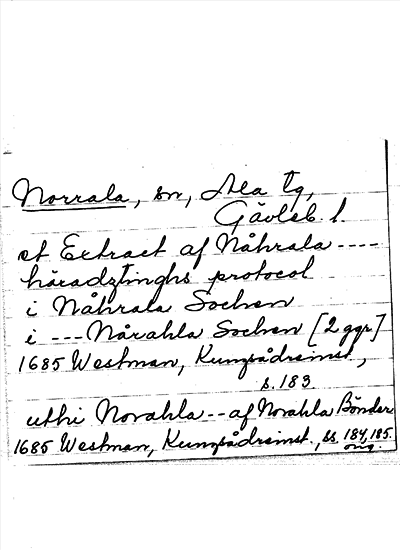 Norrala, sn, Ala tg,
Gävleb. l.
et Extract af Nåhrala ----
häradztinghs protocol
i Nåhrala Sochen
i --- Nårahla Sochen [2 ggr]
1685 Westman, Kungsådreinst,
s. 183
uthi Norahla -- af Norahla Bönder
1685 Westman, Kungsådreinst., ss. 184, 185.
orig.